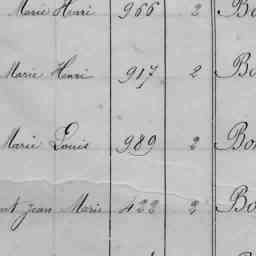 Marie Henri 966 2 Bo
Marie Henri 917 2 Bo
Marie Louis 989 2 Bo
nt jean Marie 422 2 Bo